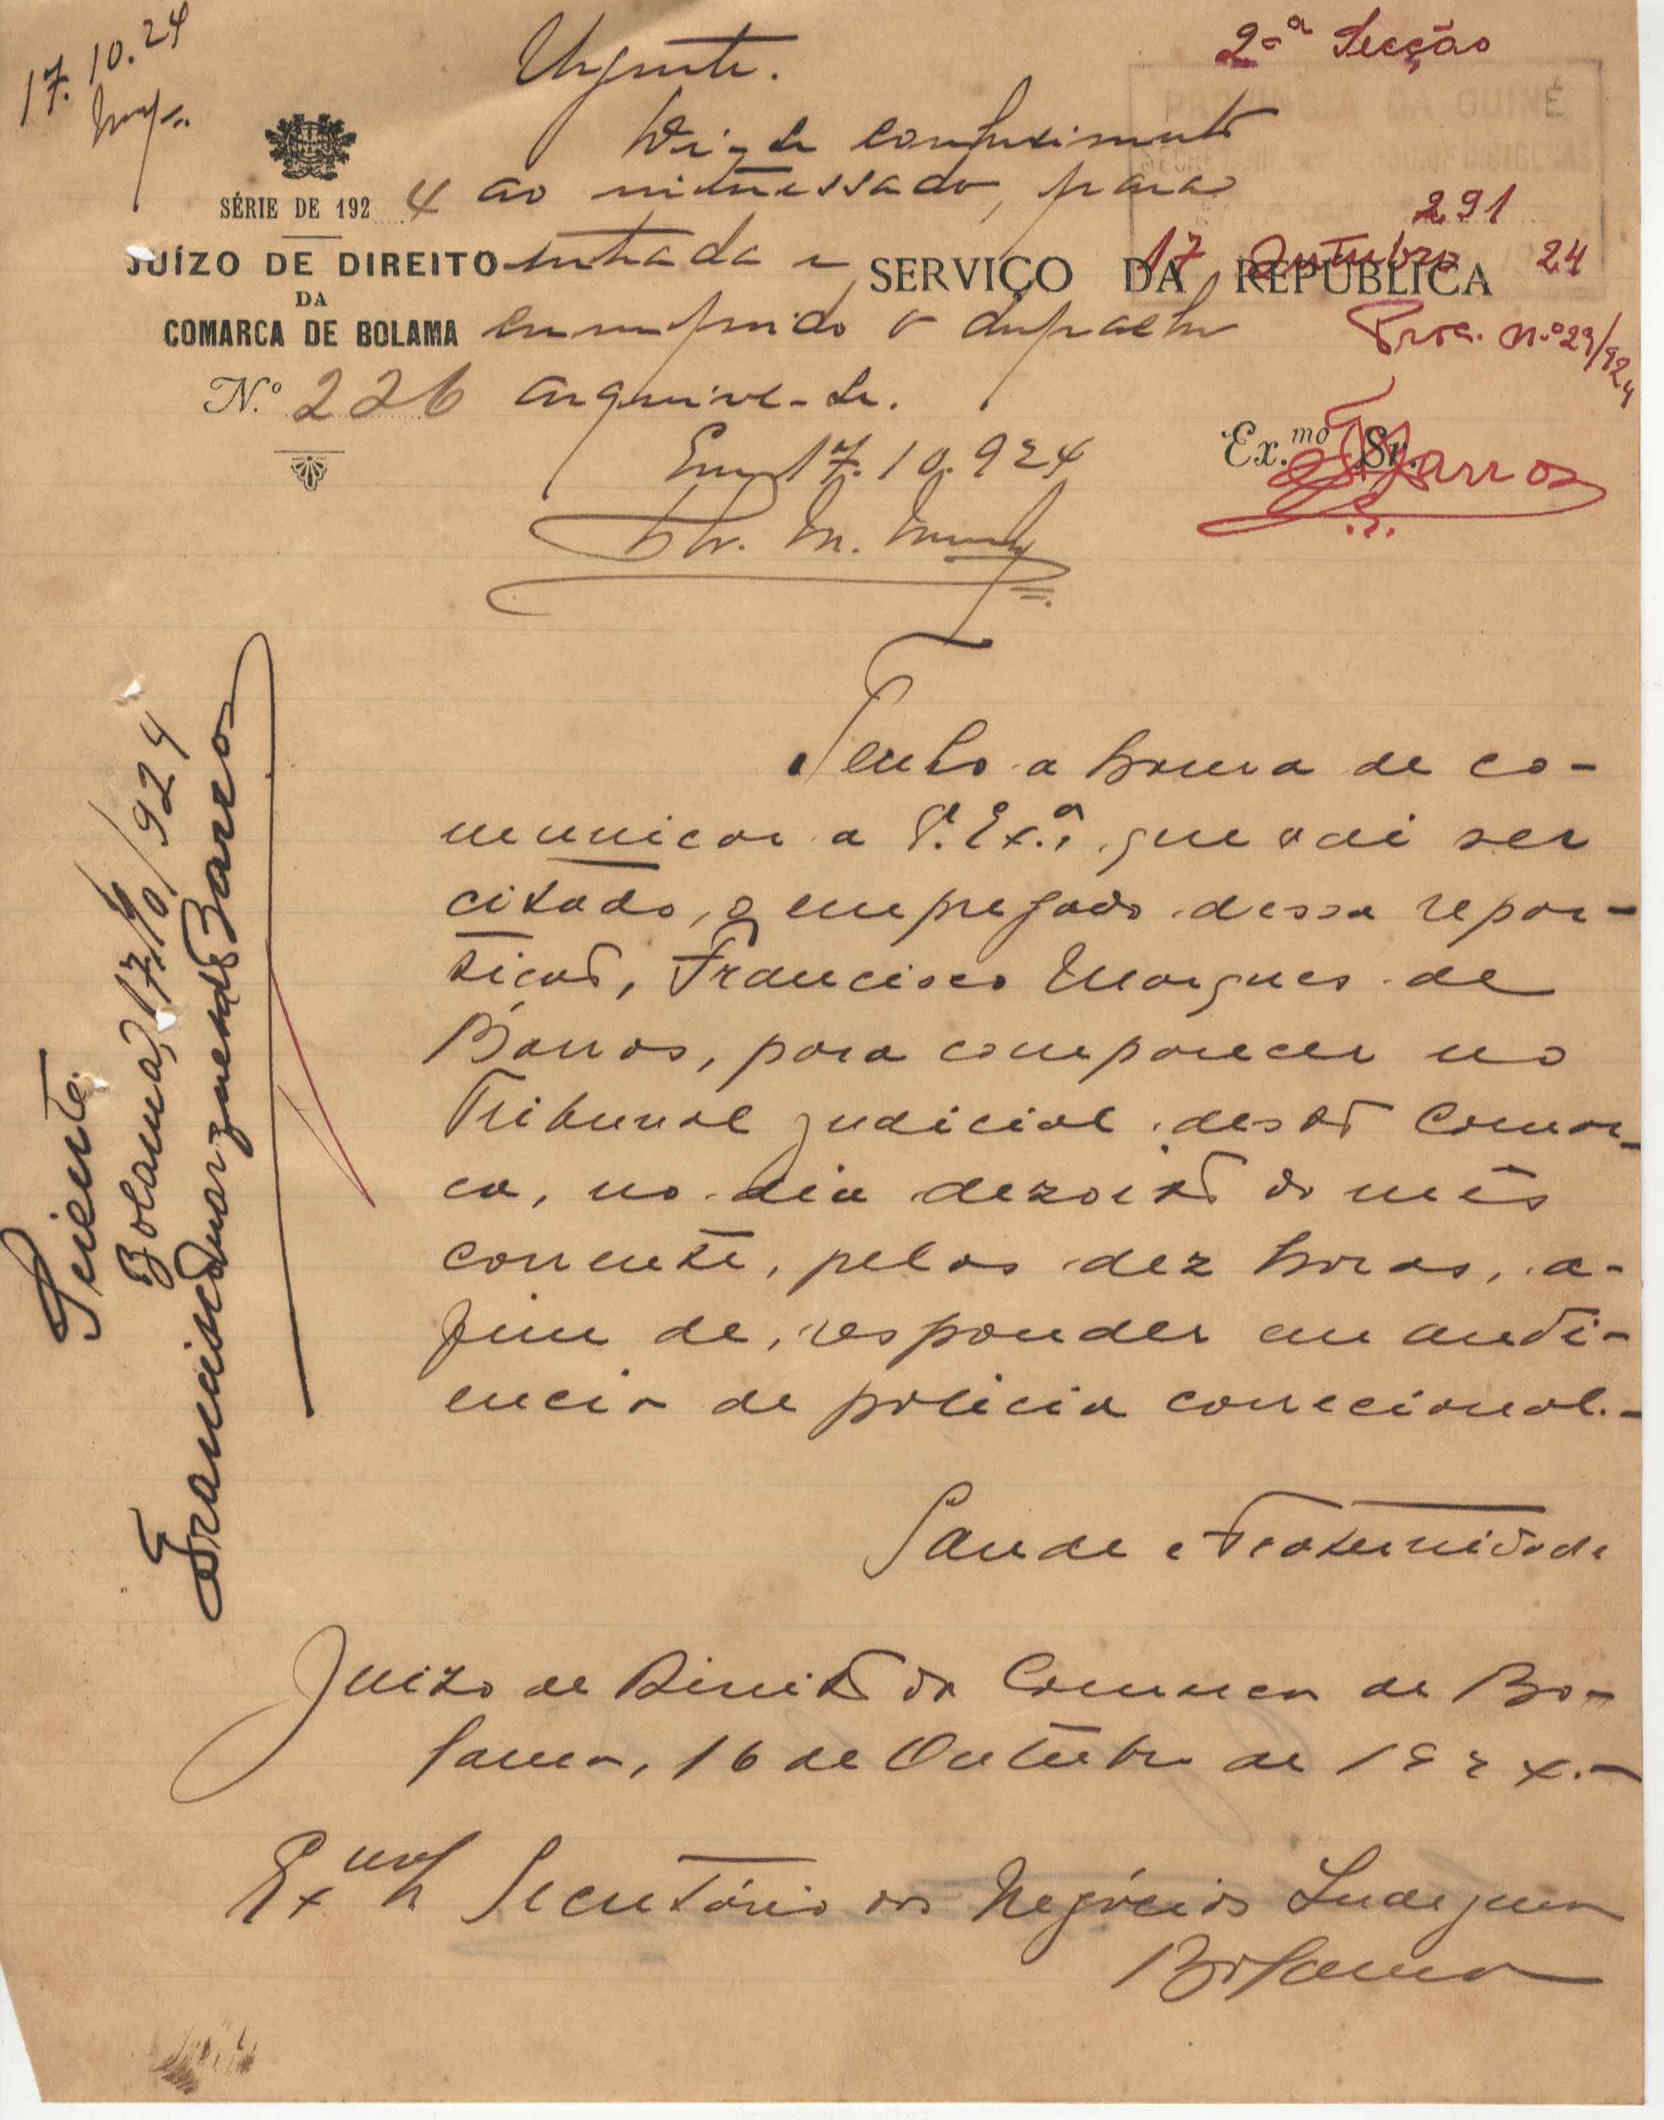 17.10.24
Urgente.
2.ª Secção
PROVINCIA DA GUINÉ
Dê-se conhecimento
SÉRIE DE 1924
ao interessado, para
291
JUÍZO DE DIREITO
entrada e
17 Outubro 24
SERVIÇO DA REPÚBLICA
DA
COMARCA DE BOLAMA
cumprido o despacho
Proc. N.º 29/924
N.º 226
arquive-se.
Em 17.10.924
Ex.mo Sr.
Barros
Tenho a honra de co-
municar a V. Ex.ª, que vai ser
citado, o empregado dessa repar-
ticão, Francisco Marques de
Barros, para comparecer no
Tribunal judicial desta Comar-
ca, no dia dezoito do mês
corrente, pelas dez horas, a-
fim de, responder em audi-
encia de policia correcional.-
Saude e Fraternidade
Juizo de Direito da Comarca de Bo-
lama, 16 de Outubro de 1924.-
Ex.mo Sr. Secretário dos Negócios Indigenas
Bolama
Sciente
Bolama, 17/10/924
Francisco Marques de Barros